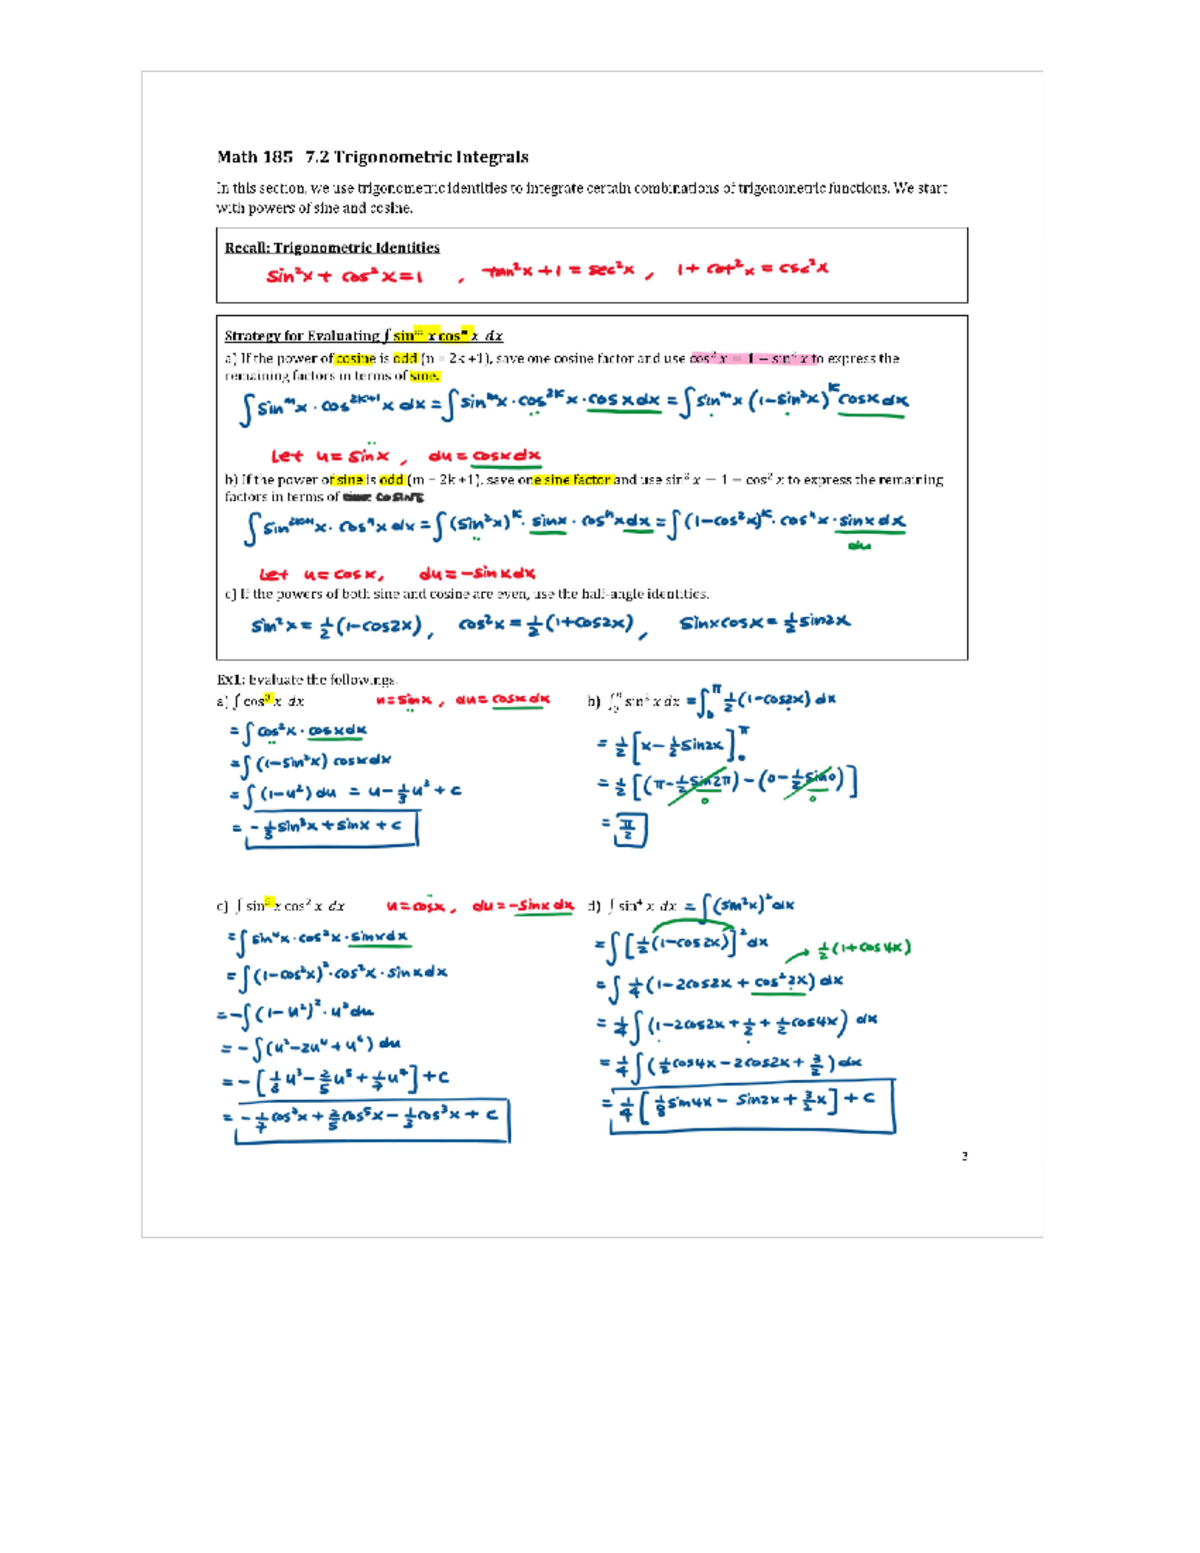 Math 185 7.2 Trigonometric Integrals
In this section, we use trigonometric identities to integrate certain combinations of trigonometric functions. We start
with powers of sine and cosine.
Recall: Trigonometric Identities
sin²x + cos²x = 1 , tan²x + 1 = sec²x , 1 + cot²x = csc²x
Strategy for Evaluating ∫ sinᵐ x cosⁿ x dx
a) If the power of cosine is odd (n = 2k +1), save one cosine factor and use cos² x = 1 − sin² x to express the
remaining factors in terms of sine.
∫ sinᵐx · cos²ᵏ⁺¹x dx = ∫ sinᵐx · cos²ᵏx · cosx dx = ∫ sinᵐx (1-sin²x)ᵏ cosx dx
Let u = sinx , du = cosx dx
b) If the power of sine is odd (m = 2k +1), save one sine factor and use sin² x = 1 − cos² x to express the remaining
factors in terms of cosine
∫ sin²ᵏ⁺¹x · cosⁿx dx = ∫ (sin²x)ᵏ · sinx · cosⁿx dx = ∫ (1-cos²x)ᵏ · cosⁿx · sinx dx
du
Let u = cosx, du = -sinx dx
c) If the powers of both sine and cosine are even, use the half-angle identities.
sin²x = ½(1-cos2x) , cos²x = ½(1+cos2x) , sinxcosx = ½sin2x
Ex1: Evaluate the followings.
a) ∫ cos³ x dx u = sinx , du = cosx dx
= ∫ cos²x · cosx dx
= ∫ (1-sin²x) cosx dx
= ∫ (1-u²) du = u - ⅓u³ + c
= -⅓sin³x + sinx + c
b) ∫₀^π sin² x dx = ∫₀^π ½(1-cos2x) dx
= ½[x - ½sin2x]₀^π
= ½[(π - ½sin2π) - (0 - ½sin0)]
0 0
= π/2
c) ∫ sin⁵ x cos² x dx u = cosx , du = -sinx dx
= ∫ sin⁴x · cos²x · sinx dx
= ∫ (1-cos²x)² · cos²x · sinx dx
= -∫ (1-u²)² · u² du
= -∫ (u² - 2u⁴ + u⁶) du
= -[⅓u³ - ⅖u⁵ + 1/7 u⁷] + c
= -1/7 cos⁷x + ⅖cos⁵x - ⅓cos³x + c
d) ∫ sin⁴ x dx = ∫ (sin²x)² dx
= ∫ [½(1-cos2x)]² dx
→ ½(1+cos4x)
= ∫ ¼(1-2cos2x + cos²2x) dx
= ¼∫ (1-2cos2x + ½ + ½cos4x) dx
= ¼∫ (½cos4x - 2cos2x + 3/2) dx
= ¼[⅛sin4x - sin2x + 3/2 x] + c
3